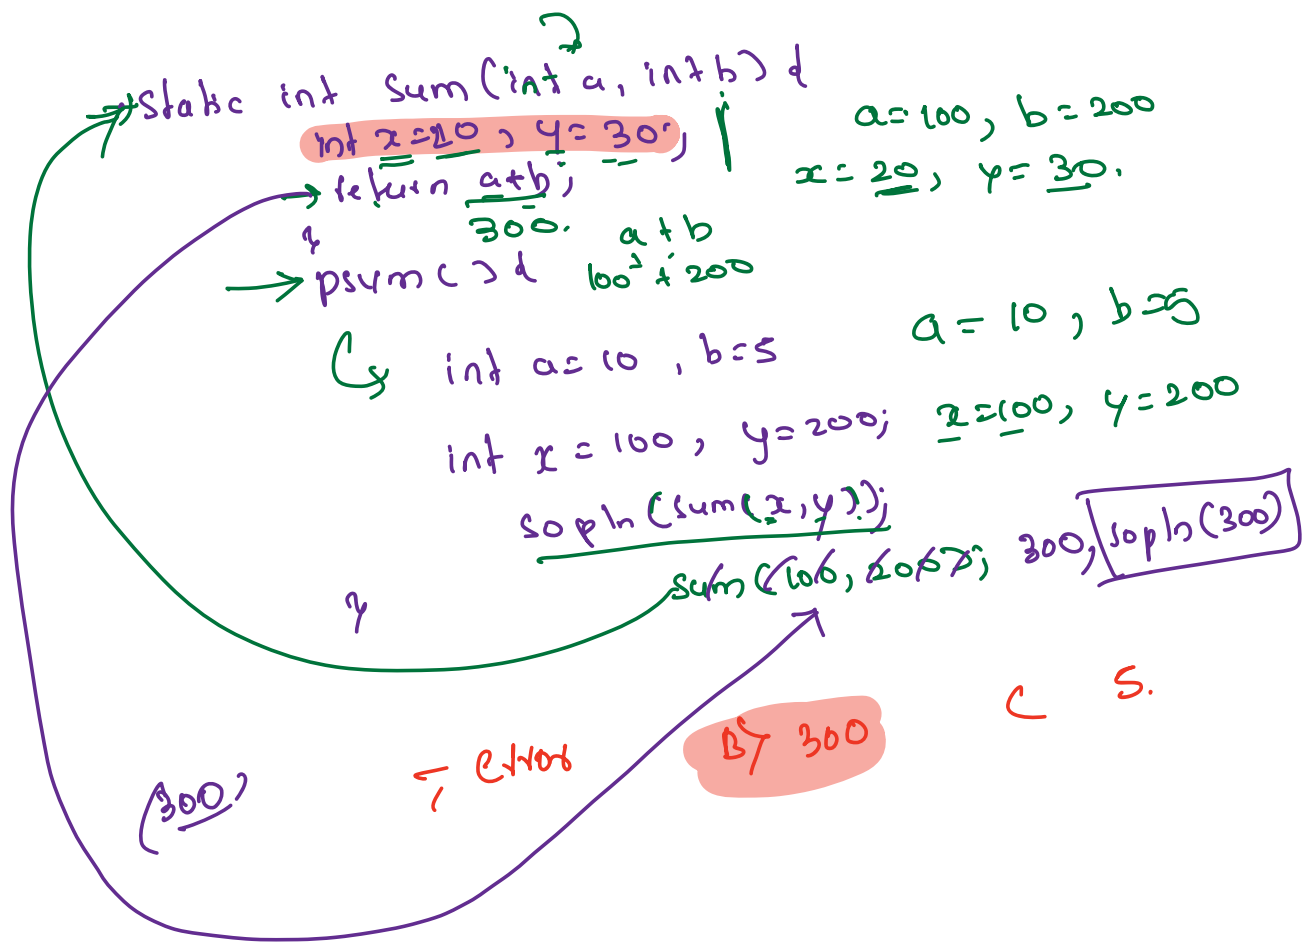 static int sum(int a, int b) {
int x=20, y=30;
a=100, b=200
x=20, y=30.
return a+b;
300.
a+b
}
psvm() {
100 + 200
int a=10, b=5
a=10, b=5
int x=100, y=200;
x=100, y=200
sopln(sum(x,y));
sum(100, 200);
300, sopln(300)
}
Error
B) 300
C 5.
(300)